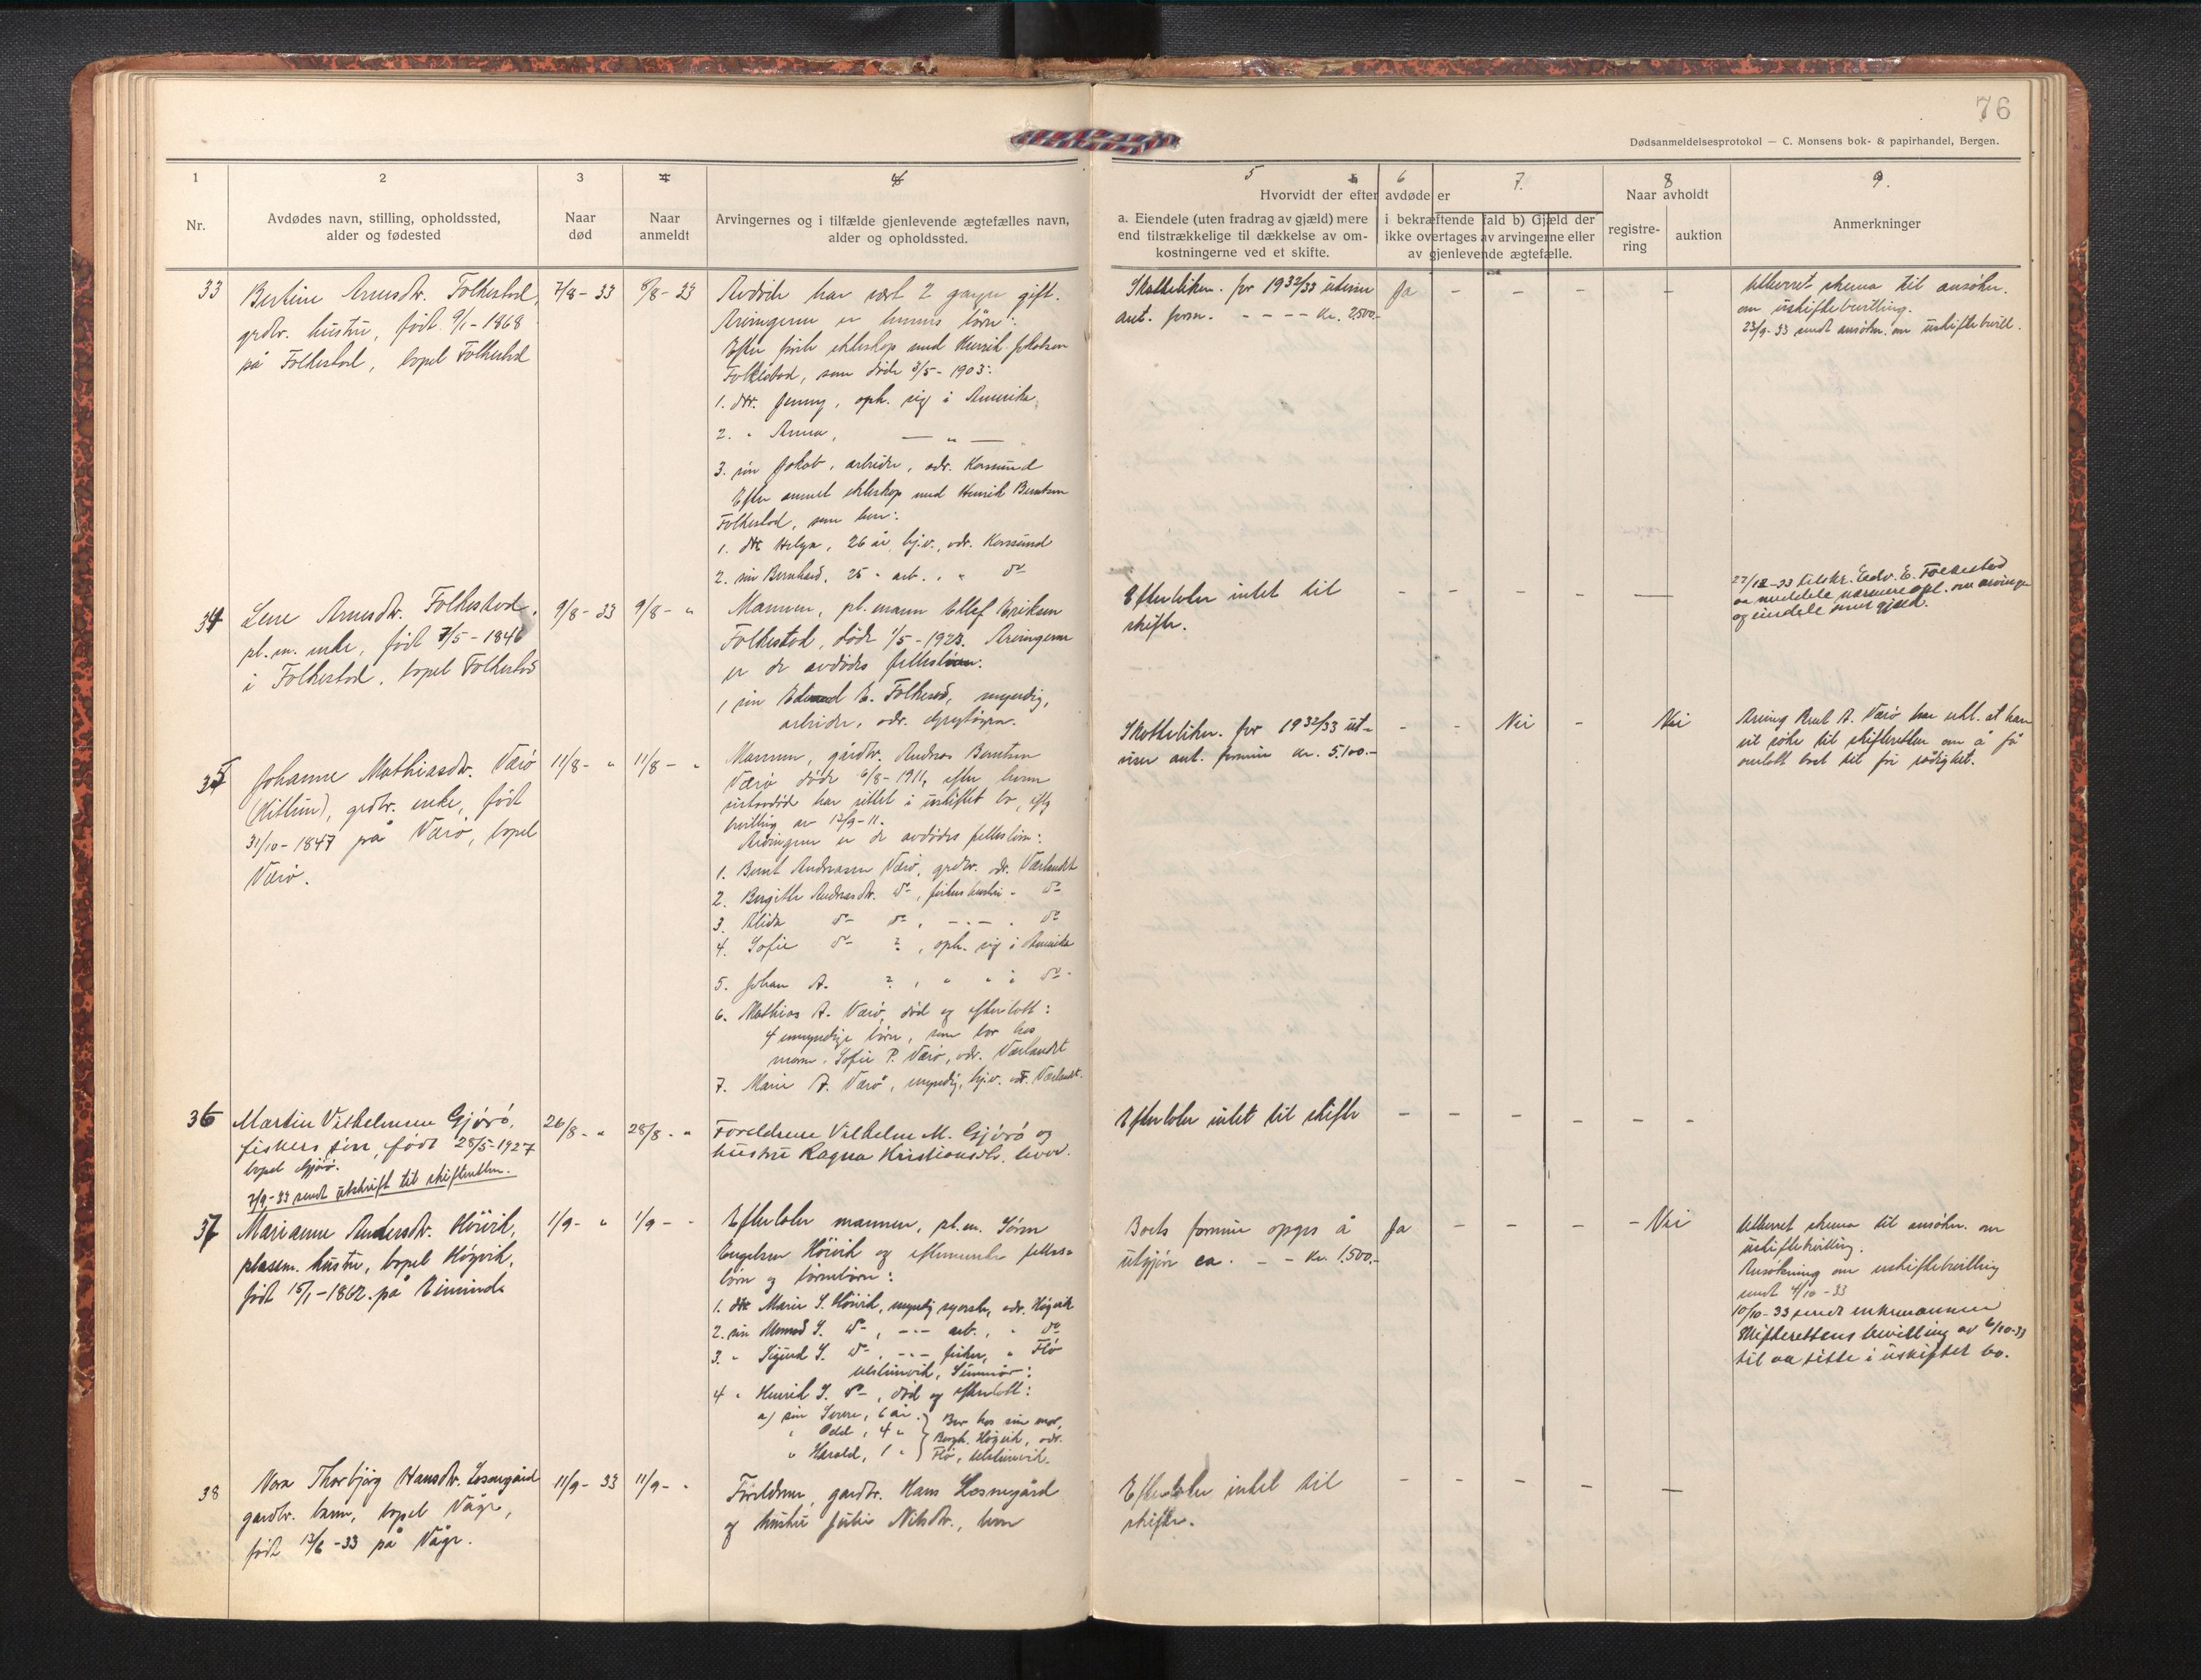 76
Dødsanmeldelsesprotokol — C. Monsens bok- & papirhandel, Bergen.
1
2
3
4
5
6
7.
8
9.
Nr.
Avdødes navn, stilling, opholdssted,
alder og fødested
Naar
død
Naar
anmeldt
Arvingernes og i tilfælde gjenlevende ægtefælles navn,
alder og opholdssted.
Hvorvidt der efter avdøde er
a. Eiendele (uten fradrag av gjæld) mere
end tilstrækkelige til dækkelse av om-
kostningerne ved et skifte.
i bekræftende fald b) Gjæld der
ikke overtages av arvingerne eller
av gjenlevende ægtefælle.
Naar avholdt
registre-
ring
auktion
Anmerkninger
33
Bertine Arnesdtr. Folkestad,
grdbr. hustru, født 9/1-1868
på Folkestad, bopel Folkestad
7/8-33
8/8-33
Avdøde har vært 2 ganger gift.
Arvingerne er hennes børn:
Efter første ekteskap med Henrik Jakobsen
Folkestad, som døde 3/5-1903:
1. dtr. Jenny, oph. sig i Amerika
2. " Anna, — " —
3. søn Jakob, arbeider, adr. Korssund
Efter annet ekteskap med Henrik Berntsen
Folkestad, som lever:
1. dtr Helga, 26 år, hj.v., adr. Korssund
2. søn Bernhard, 25 " arb. , " do
Skattelikn. for 1932/33 utviser
ant. form. - - - - kr. 2500.-
Ja - - - -
Utlevert skema til ansøkn.
om uskiftebevilling.
23/9-33 sendt ansøkn. om uskiftebevill.
34
Lene Arnesdtr. Folkestad,
pl.m. enke, født 7/5-1846
i Folkestad, bopel Folkestad
9/8-33
9/8- "
Mannen, pl.mann Ellef Eriksen
Folkestad, døde 1/5-1923. Arvingerne
er de avdødes fellesbørn:
1 søn Edvard E. Folkestad, myndig,
arbeider, adr.
Efterlater intet til
skifte.
- - - - —
27/12-33 tilskr. Edv. E. Folkestad
aa meddele nærmere opl. om arvinger
og eiendele samt gjeld.
35
Johanne Mathiasdtr. Værø
grdbr. enke, født
31/10-1847 på Værø, bopel
Værø.
11/8- "
11/8- "
Mannen, gårdbr. Andreas Berntsen
Værø døde 6/8-1911, efter hvem
sistavdøde har sittet i uskiftet bo, iflg
bevilling av 12/9-11.
Arvingerne er de avdødes fellesbørn:
1. Bernt Andreassen Værø, grdbr. adr. Værlandet
2. Bergithe Andreasdtr. do, fiskerhustru - do
3. Alida do do, - " - . do
4. Sofie do ?, oph. sig i Amerika
5. Johan A. ?, " " i do
6. Mathias A. Værø, død og efterlatt:
4 umyndige børn, som bor hos
moren, Sofie P. Værø, adr. Værlandet
7. Marie A. Værø, myndig, hj.v. adr. Værlandet.
Skattelikn. for 1932/33 ut-
viser ant. formue kr. 5.100.-
- - Nei - Nei
Arving Bernt A. Værø har utt. at han
vil søke til skifteretten om å få
overlatt boet til fri rådighet.
36
Martin Vilhelmsen Gjørø,
fiskers søn, født 28/5-1927
bopel Gjørø.
7/9-33 sendt utskrift til skifteretten.
26/8- "
28/8- "
Foreldrene Vilhelm M. Gjørø og
hustru Ragna Kristiansdtr. lever.
Efterlater intet til skifte
- - - - - -
37
Marianne Andersdtr. Høivik,
plassm. hustru, bopel Høgvik,
født 15/1-1862 på
1/9- "
1/9- "
Efterlater mannen, pl.m. Søren
Engelsen Høivik og eftternevnte felles-
børn og børnebørn:
1. dtr Marie S. Høivik, myndig syerske, adr. Høgvik
2. søn S. do, -"- arb., " do
3. " Sigurd S. do, -"- fisker, " Flø
Ulsteinvik, Sunmør:
4 " Henrik S. do, død og efterlatt:
a) søn Sverre, 6 år
" Odd, 4 "
" Harald, 1 "
Bor hos sin mor,
Høgvik, adr.
Flø, Ulsteinvik.
Boets formue opgis å
utgjøre ca. - - kr. 1.500.-
Ja - - - - Nei
Utlevert skema til ansøkn. om
uskiftebevilling.
Ansøkning om uskiftebevilling
sendt 4/10-33
10/10-33 sendt enkemannen
Skifterettens bevilling av 6/10-33
til aa sitte i uskiftet bo.
38
Nora Thorbjørg Hansdtr. Losnegård
gardbr. barn, bopel Våge,
født 13/6-33 på Våge.
11/9-33
11/9- "
Foreldrene, gardbr. Hans Losnegård
og hustru Julie Nilsdtr., lever
Efterlater intet til
skifte.
- - - - —